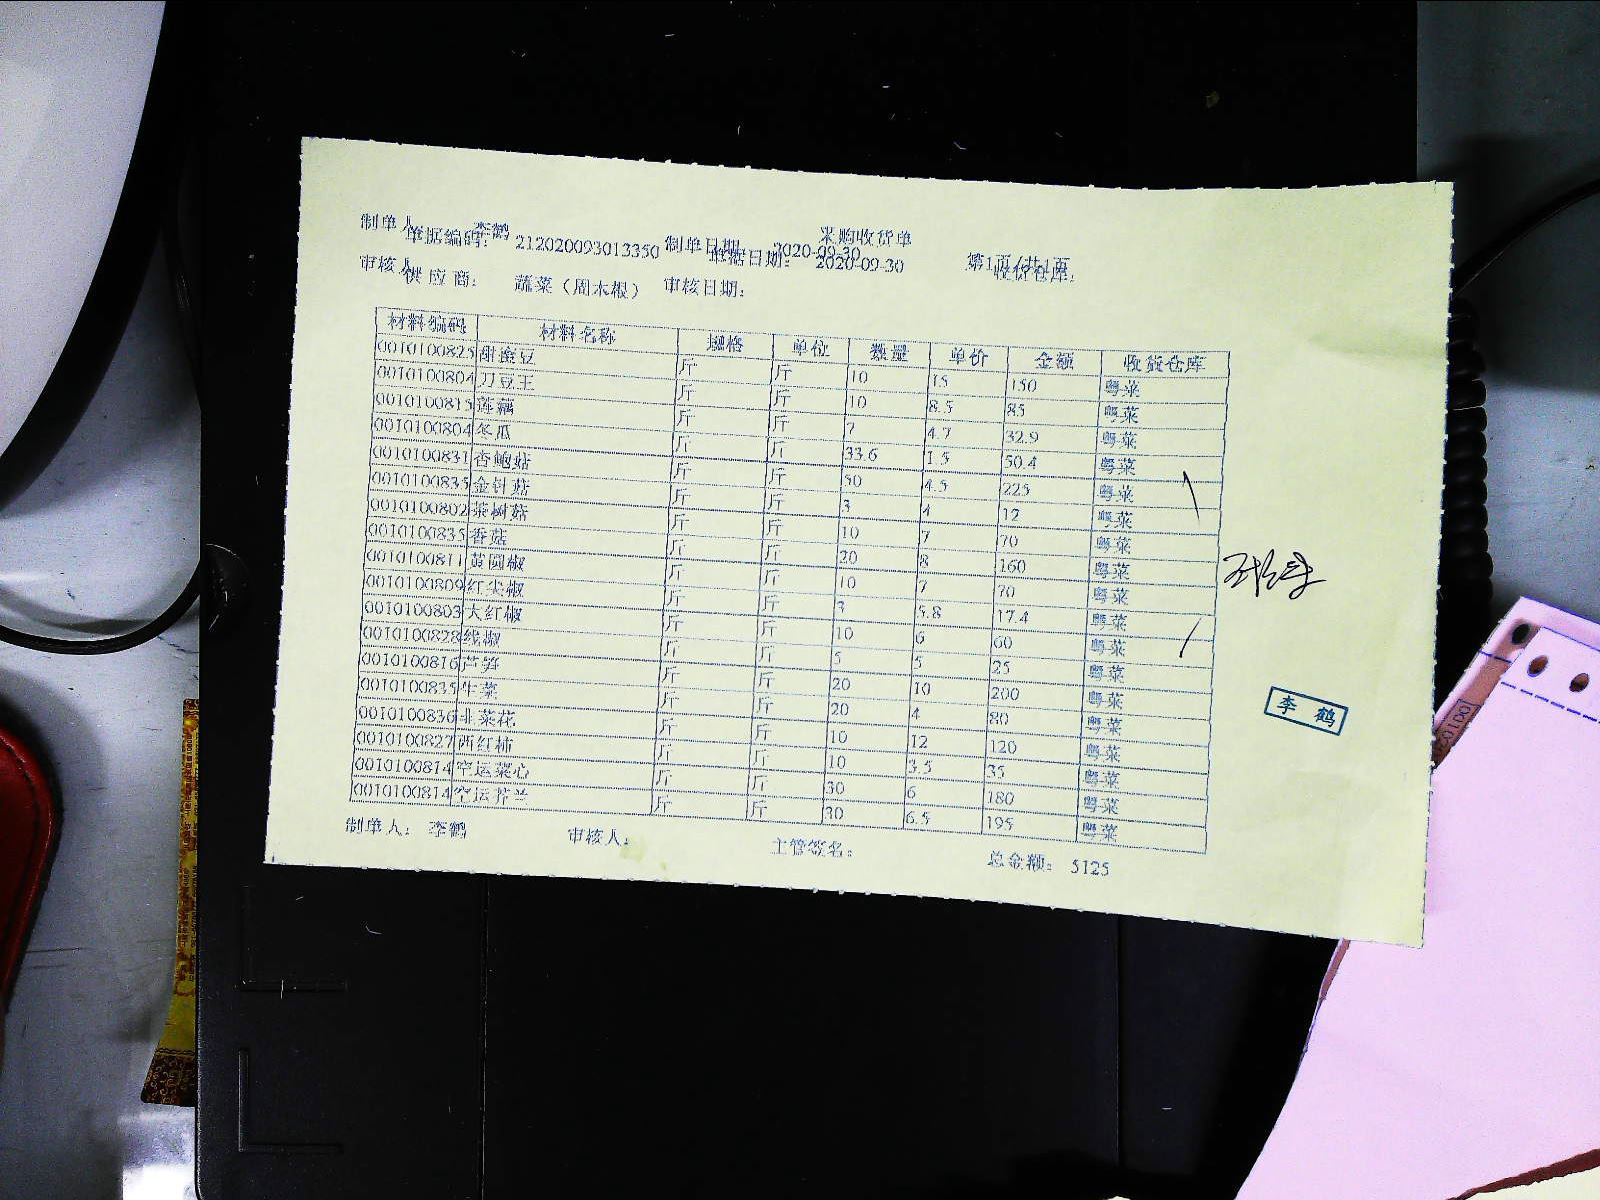 采购收货单
制单人 李鹤 制单日期 2020-09-30 第1页/共1页
单据编码: 212020093013350 单据日期: 2020-09-30 收货仓库:
审核人 审核日期:
供应商: 蔬菜（周木根）
材料编码 材料名称 规格 单位 数量 单价 金额 收货仓库
0010100825 甜蜜豆 斤 斤 10 15 150 粤菜
0010100804 刀豆王 斤 斤 10 8.5 85 粤菜
0010100815 莲藕 斤 斤 7 4.7 32.9 粤菜
0010100804 冬瓜 斤 斤 33.6 1.5 50.4 粤菜
0010100831 杏鲍菇 斤 斤 50 4.5 225 粤菜
0010100835 金针菇 斤 斤 3 4 12 粤菜
0010100802 茶树菇 斤 斤 10 7 70 粤菜
0010100835 香菇 斤 斤 20 8 160 粤菜
0010100811 黄圆椒 斤 斤 10 7 70 粤菜
0010100809 红尖椒 斤 斤 3 5.8 17.4 粤菜
0010100803 大红椒 斤 斤 10 6 60 粤菜
0010100828 线椒 斤 斤 5 5 25 粤菜
0010100816 芦笋 斤 斤 20 10 200 粤菜
0010100835 生菜 斤 斤 20 4 80 粤菜
0010100836 韭菜花 斤 斤 10 12 120 粤菜
0010100827 西红柿 斤 斤 10 3.5 35 粤菜
0010100814 空运菜心 斤 斤 30 6 180 粤菜
0010100814 空运芥兰 斤 斤 30 6.5 195 粤菜
李鹤
制单人: 李鹤 审核人: 主管签名: 总金额: 5125